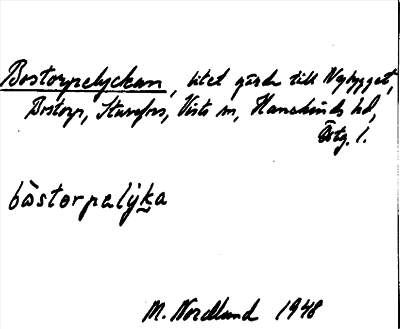 Bostorpelyckan, litet gärde till Nybygget,
Bostorp, Sturefors, Vists sn, Hanekinds hd,
Östg. l.
bòstorpalýka
M. Nordlund 1948